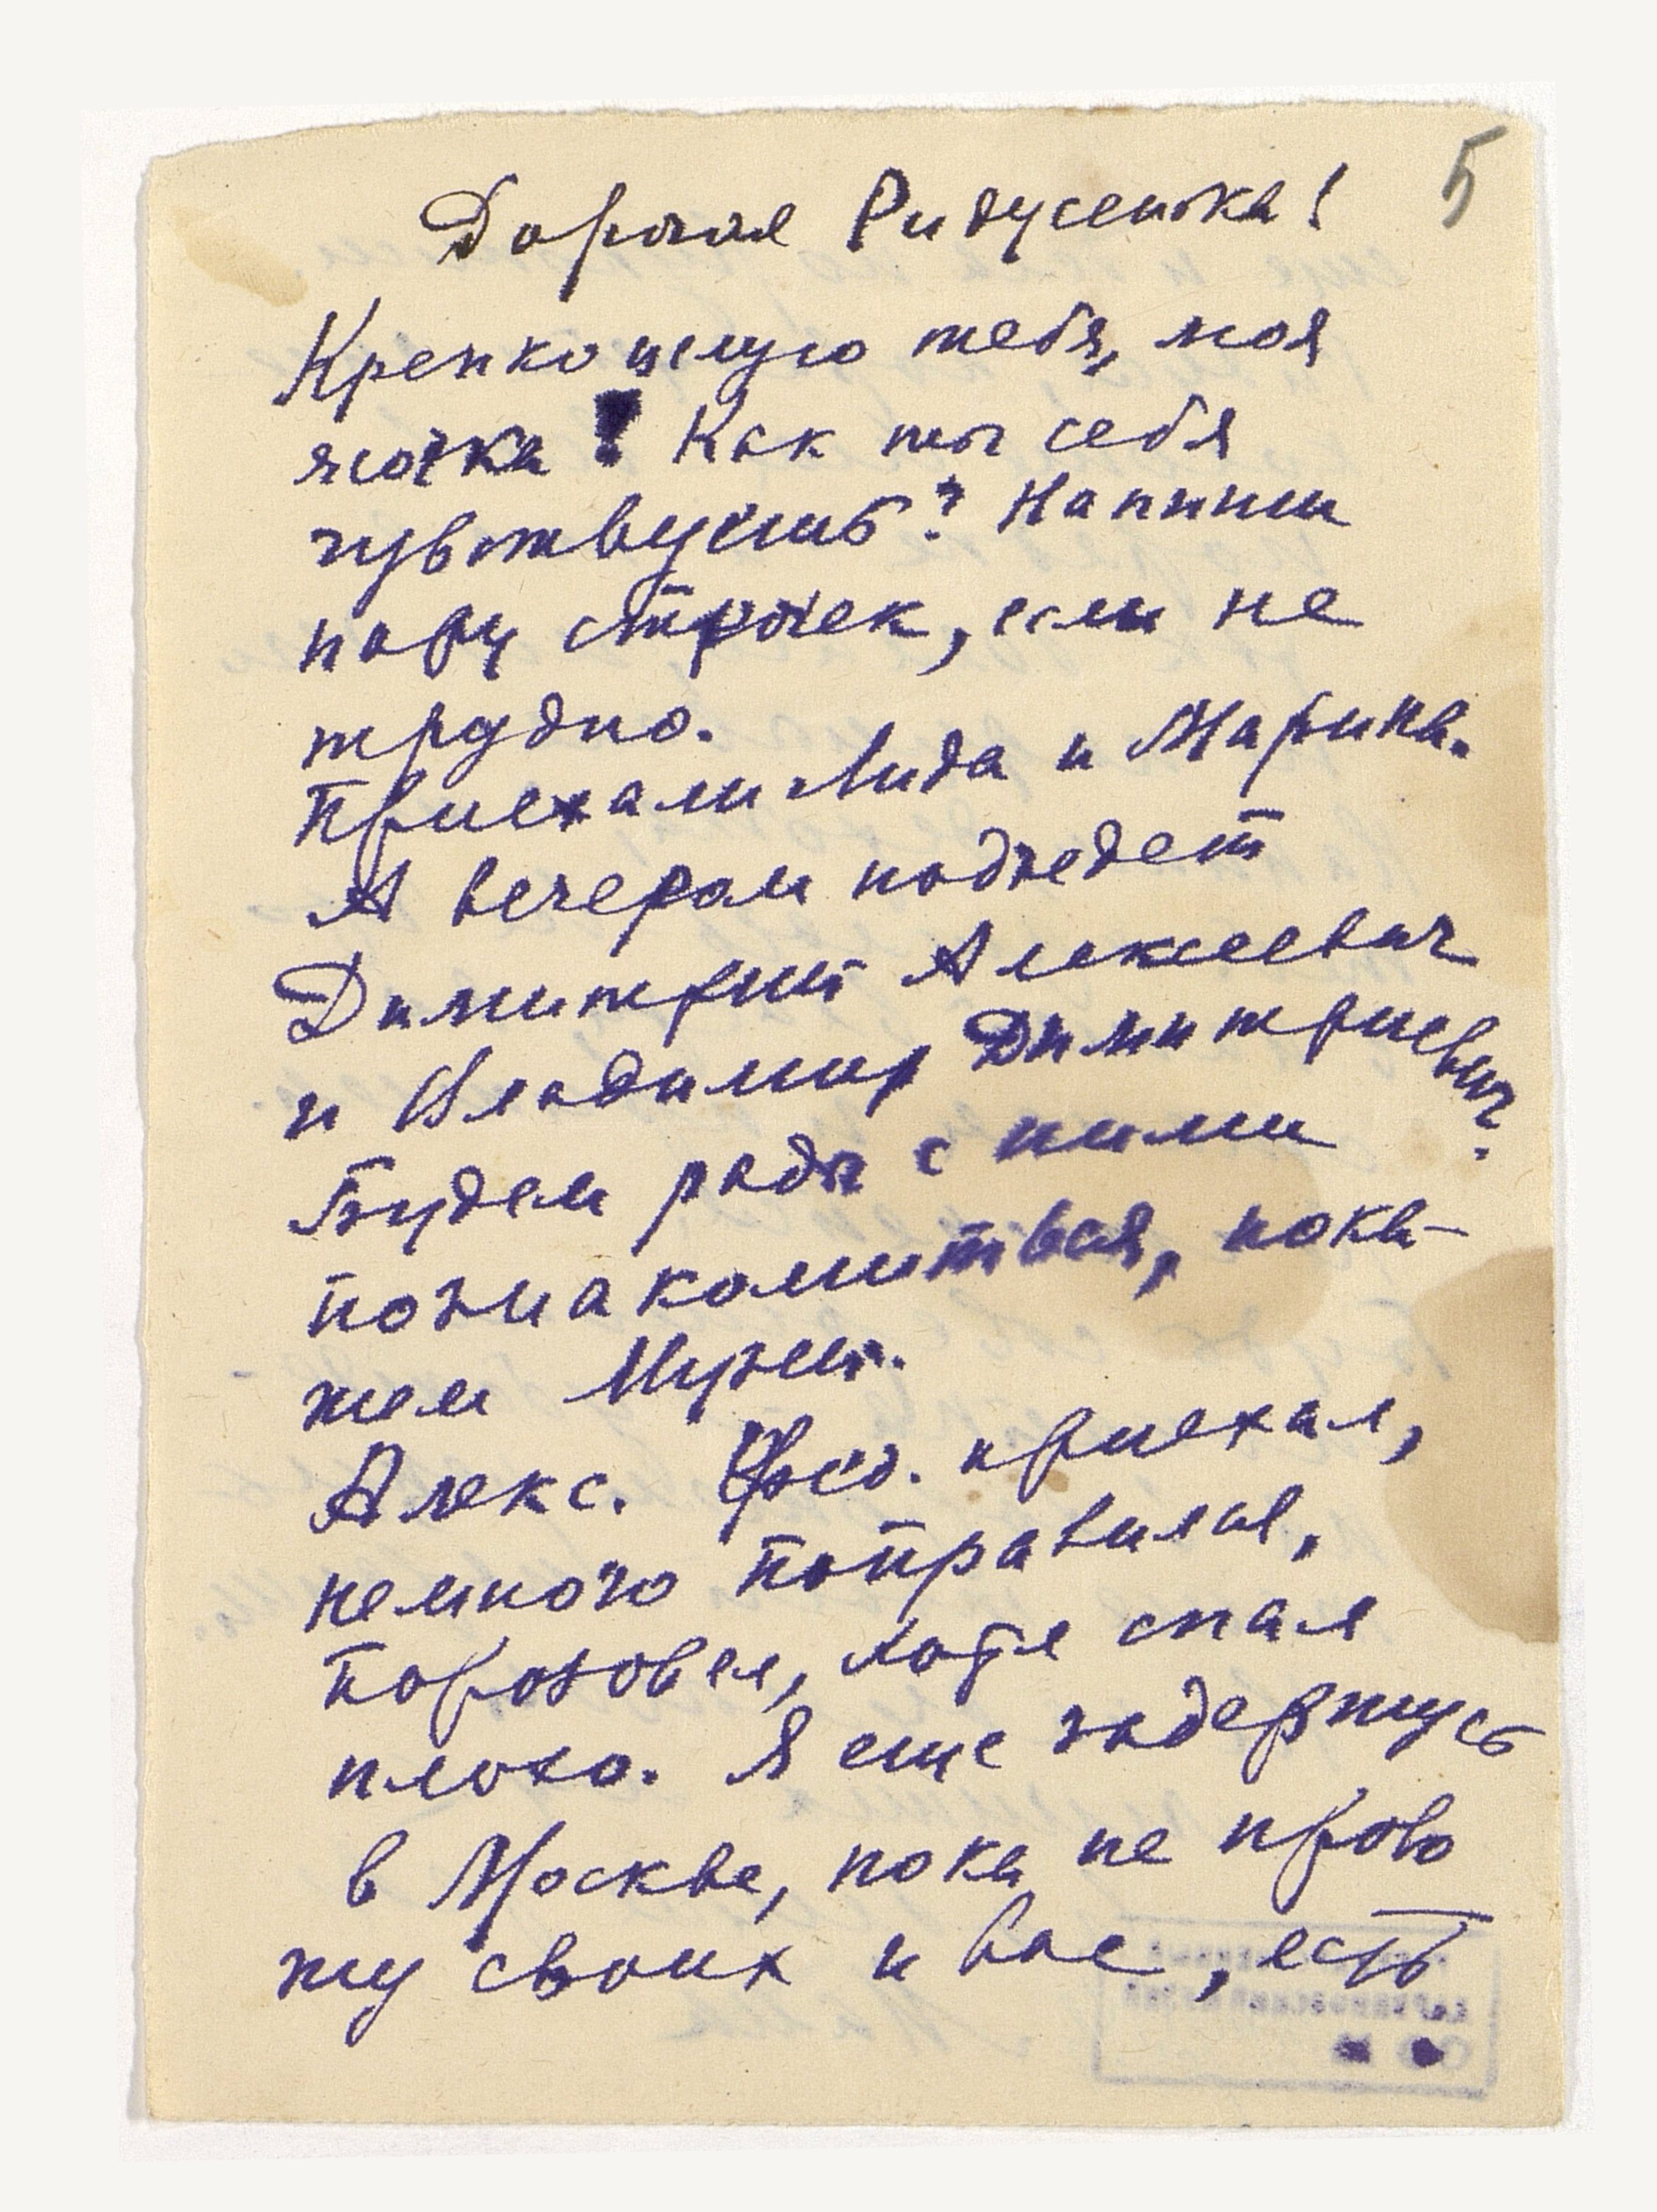 5
Дорогая Ридусенька!
Крепко целую тебя, моя
ясочка! Как ты себя
чувствуешь? Напиши
пару строчек, если не
трудно.
Приехали Лида и Марина.
А вечером подъедет
Димитрий Алексеевич
и Владимир Димитриевич.
Будем рады с ними
познакомиться, пока-
жем Музей.
Алекс. Фед. приехал,
немного поправился,
порозовел, хотя спал
плохо. Я еще задержусь
в Москве, пока не прово
жу своих и вас, есть